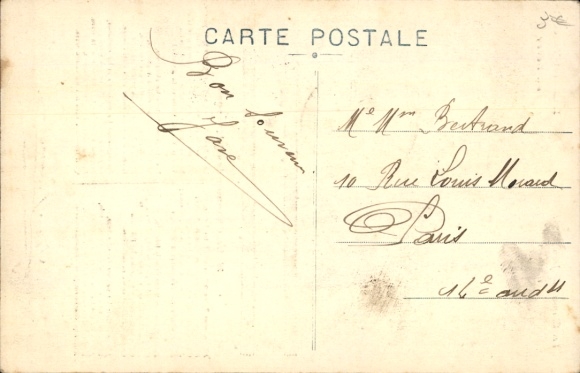 CARTE POSTALE
Bon Souvenir
Fare
Me Mm Bertrand
10 Rue Louis Morard
Paris
14e arrdt
3€